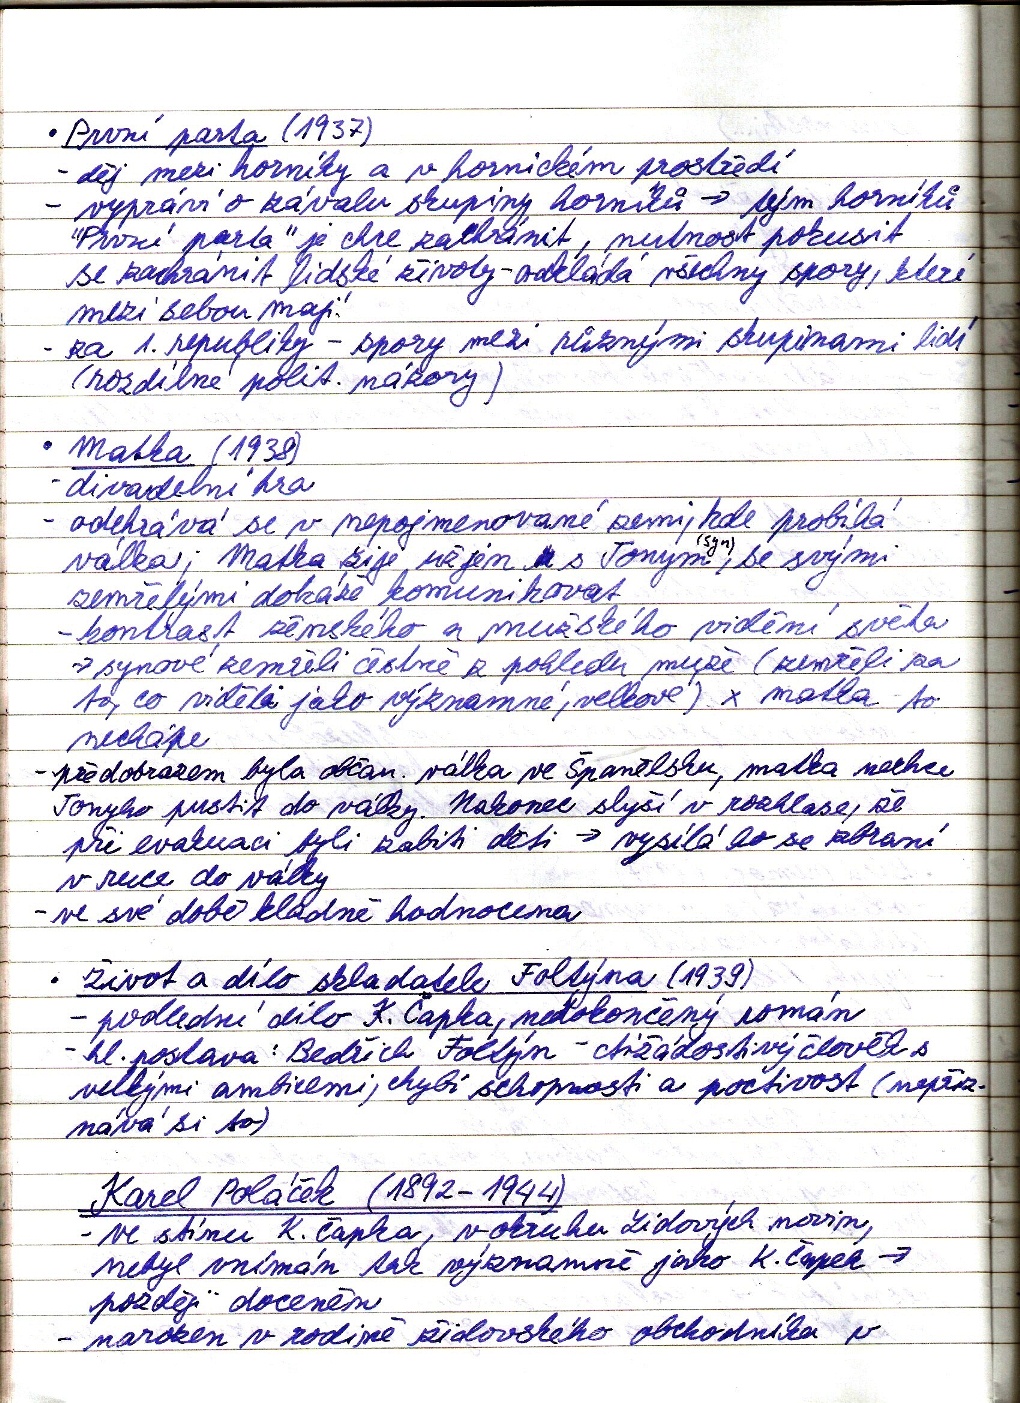 • První parta (1937)
- děj mezi horníky a v hornickém prostředí
- vypráví o závalu skupiny horníků → tým horníků
"První parta" je chce zachránit, nutnost pokusit
se zachránit lidské životy - odkládá všechny spory, které
mezi sebou mají
- za 1. republiky - spory mezi různými skupinami lidí
(rozdílné polit. názory)
• Matka (1938)
- divadelní hra
- odehrává se v nepojmenované zemi, kde probíhá
válka; Matka žije už jen s Tonym (syn), se svými
zemřelými dokáže komunikovat
- kontrast ženského a mužského vidění světa
→ synové zemřeli čestně z pohledu mužů (zemřeli za
to, co viděli jako významné, velkové) x matka to
nechápe
- předobrazem byla občan. válka ve Španělsku, matka nechce
Tonyho pustit do války. Nakonec slyší v rozhlase, že
při evakuaci byli zabiti děti → vysílá ho se zbraní
v ruce do války
- ve své době kladně hodnocena
• Život a dílo skladatele Foltýna (1939)
- poslední dílo K. Čapka, nedokončený román
- hl. postava: Bedřich Foltýn - ctižádostivý člověk s
velkými ambicemi, chybí schopnosti a poctivost (nepřiz-
nává si to)
Karel Poláček (1892-1944)
- ve stínu K. Čapka, v okruhu Lidových novin,
nebyl vnímán tak významně jako K. Čapek →
později doceněn
- narozen v rodině židovského obchodníka v